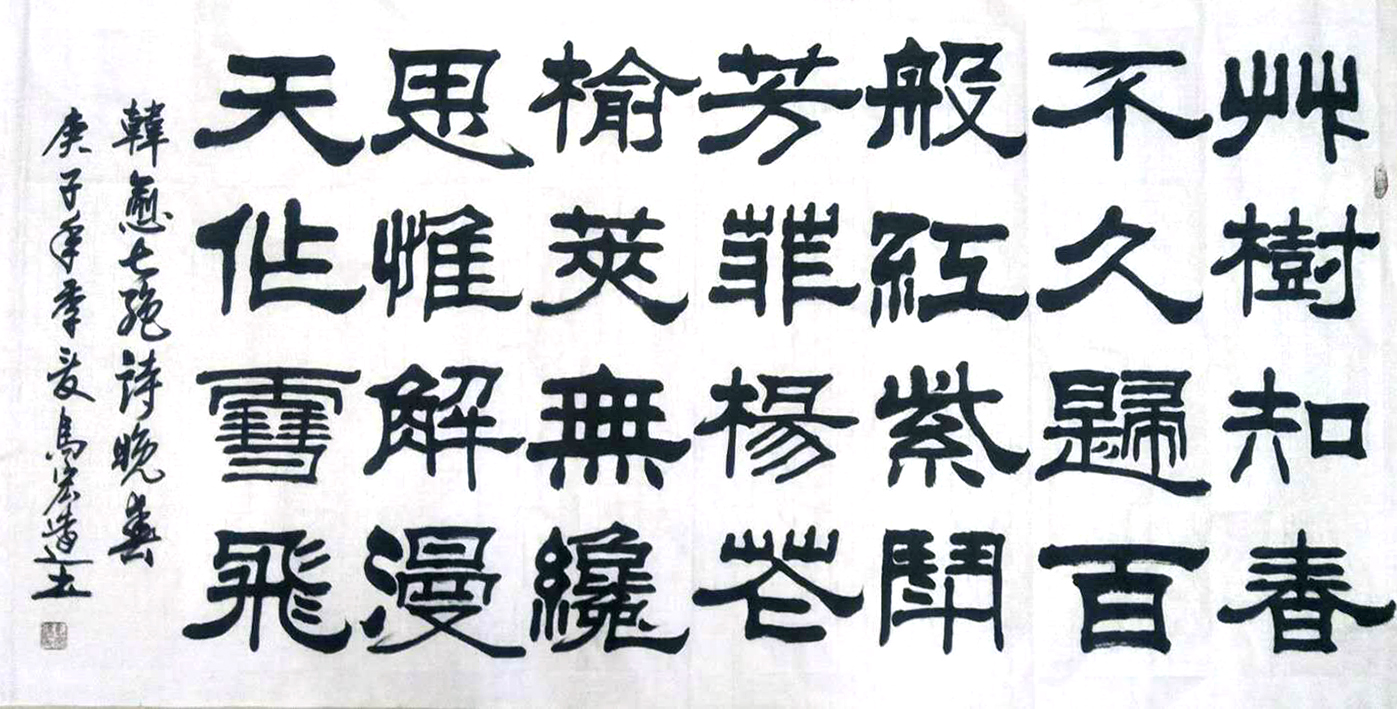 艸樹知春
不久歸百
般紅紫鬥
芳菲楊花
榆莢無纔
思惟解漫
天作雪飛
韓愈七絕詩晚春
庚子年季夏馬宏书